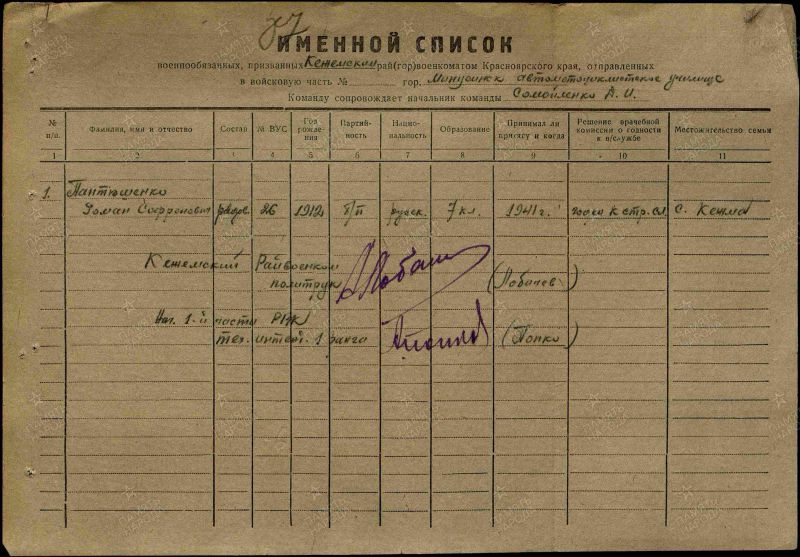 37
ИМЕННОЙ СПИСОК
военнообязанных, призванных Кежемский рай(гор)военкоматом Красноярского края, отправленных
в войсковую часть № гор. Минусинск автомотоциклетское училище
Команду сопровождает начальник команды Самойленко А. И.
№ п/п. Фамилия, имя и отчество Состав № ВУС Год рождения Партийность Национальность Образование Принимал ли присягу и когда Решение врачебной комиссии о годности к в/службе Местожительство семьи
1 2 3 4 5 6 7 8 9 10 11
1. Пантюшенко
Роман Софронович рядов. 26 1912 б/п русск. 7 кл. 1941 г. годен к стр. сл. с. Кежма
Кежемский Райвоенком
политрук (Лобачев)
Нач. 1-й части РВК
тех. интен. 1 ранга (Попко)
ПАМЯТЬ НАРОДА